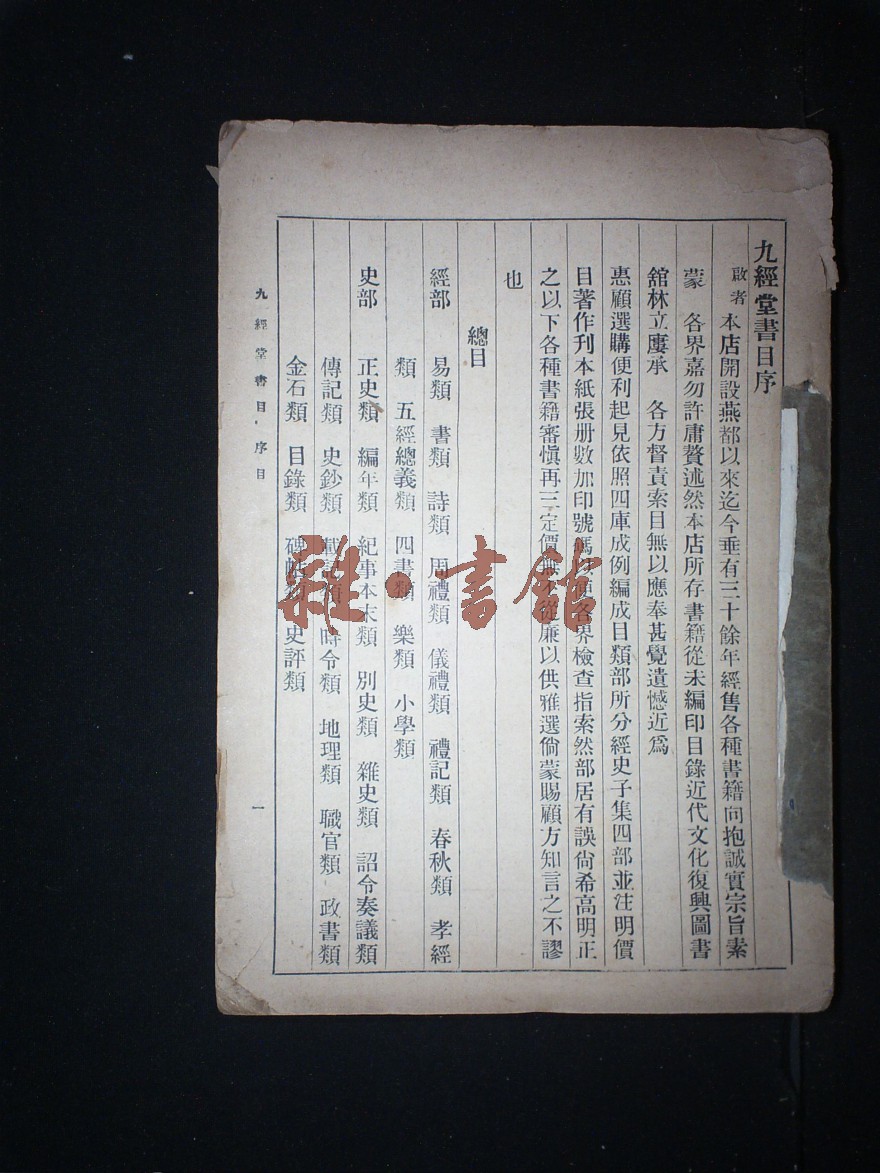 九經堂書目序
啟者本店開設燕都以來迄今垂有三十餘年經售各種書籍向抱誠實宗旨素
蒙　各界嘉勿許庸贅述然本店所存書籍從未編印目錄近代文化復興圖書
舘林立屢承　各方督責索目無以應奉甚覺遺憾近爲
惠顧選購便利起見依照四庫成例編成目類部所分經史子集四部並注明價
目著作刊本紙張册數加印號碼以便各界檢查指索然部居有誤尙希高明正
之以下各種書籍審愼再三定價無不從廉以供雅選倘蒙賜顧方知言之不謬
也
總目
經部　易類　書類　詩類　周禮類　儀禮類　禮記類　春秋類　孝經
類　五經總義類　四書類　樂類　小學類
史部　正史類　編年類　紀事本末類　別史類　雜史類　詔令奏議類
傳記類　史鈔類　載記類　時令類　地理類　職官類　政書類
金石類　目錄類　碑帖類　史評類
九經堂書目　序目
一
雜·書館